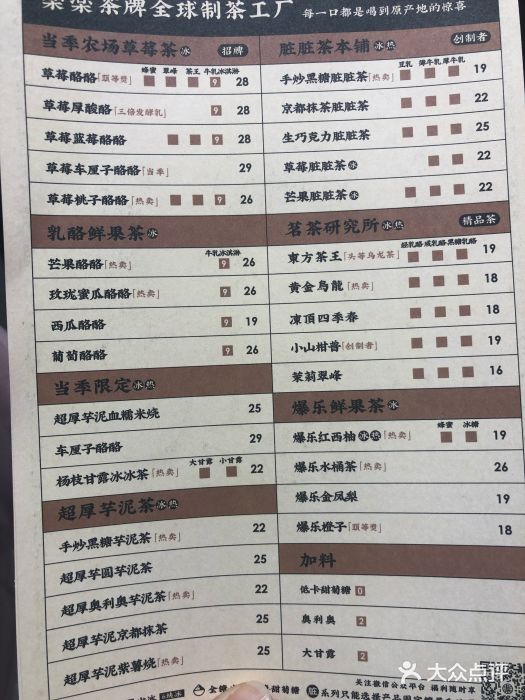 茶牌全球制茶工厂 每一口都是喝到原产地的惊喜
当季农场草莓茶 冰 招牌
蜂蜜 翠峰 茶王 牛乳冰淇淋
草莓酪酪「頭等獎」 9 28
草莓厚酸酪「三倍发酵乳」 9 28
草莓蓝莓酪酪 9 28
草莓车厘子酪酪「当季」 29
草莓桃子酪酪「热卖」 9 26
乳酪鲜果茶 冰
牛乳冰淇淋
芒果酪酪「热卖」 9 26
玫珑蜜瓜酪酪「热卖」 9 26
西瓜酪酪 9 19
葡萄酪酪 9 26
当季限定 冰 热
超厚芋泥血糯米烧 25
车厘子酪酪 29
大甘露 小甘露
杨枝甘露冰冰茶「热卖」 22
超厚芋泥茶 冰 热
手炒黑糖芋泥茶「热卖」 22
超厚芋圆芋泥茶 25
超厚奥利奥芋泥茶「热卖」 22
超厚芋泥京都抹茶 25
超厚芋泥紫薯烧「热卖」 25
脏脏茶本铺 冰 热 创制者
豆乳 薄牛乳 厚牛乳
手炒黑糖脏脏茶「热卖」 19
京都抹茶脏脏茶 22
生巧克力脏脏茶 25
草莓脏脏茶 冰 22
芒果脏脏茶 冰 22
茗茶研究所 冰 热 精品茶
轻乳酪 咸乳酪 黑糖乳酪
東方茶王「头等乌龙茶」 19
黄金烏龍「热卖」 18
凍頂四季春 18
小山柑普「创制者」 19
茉莉翠峰 16
爆乐鲜果茶 冰
蜂蜜 冰糖
爆乐红西柚 冰 热「热卖」 19
爆乐水桶茶「热卖」 26
爆乐金凤梨 19
爆乐橙子「頭等獎」 18
加料
低卡甜菊糖 0
奥利奥 2
大甘露 2
关注微信公众平台 福利随时享
甜菊糖 脏 系列只能选择产品固定糖
大众点评